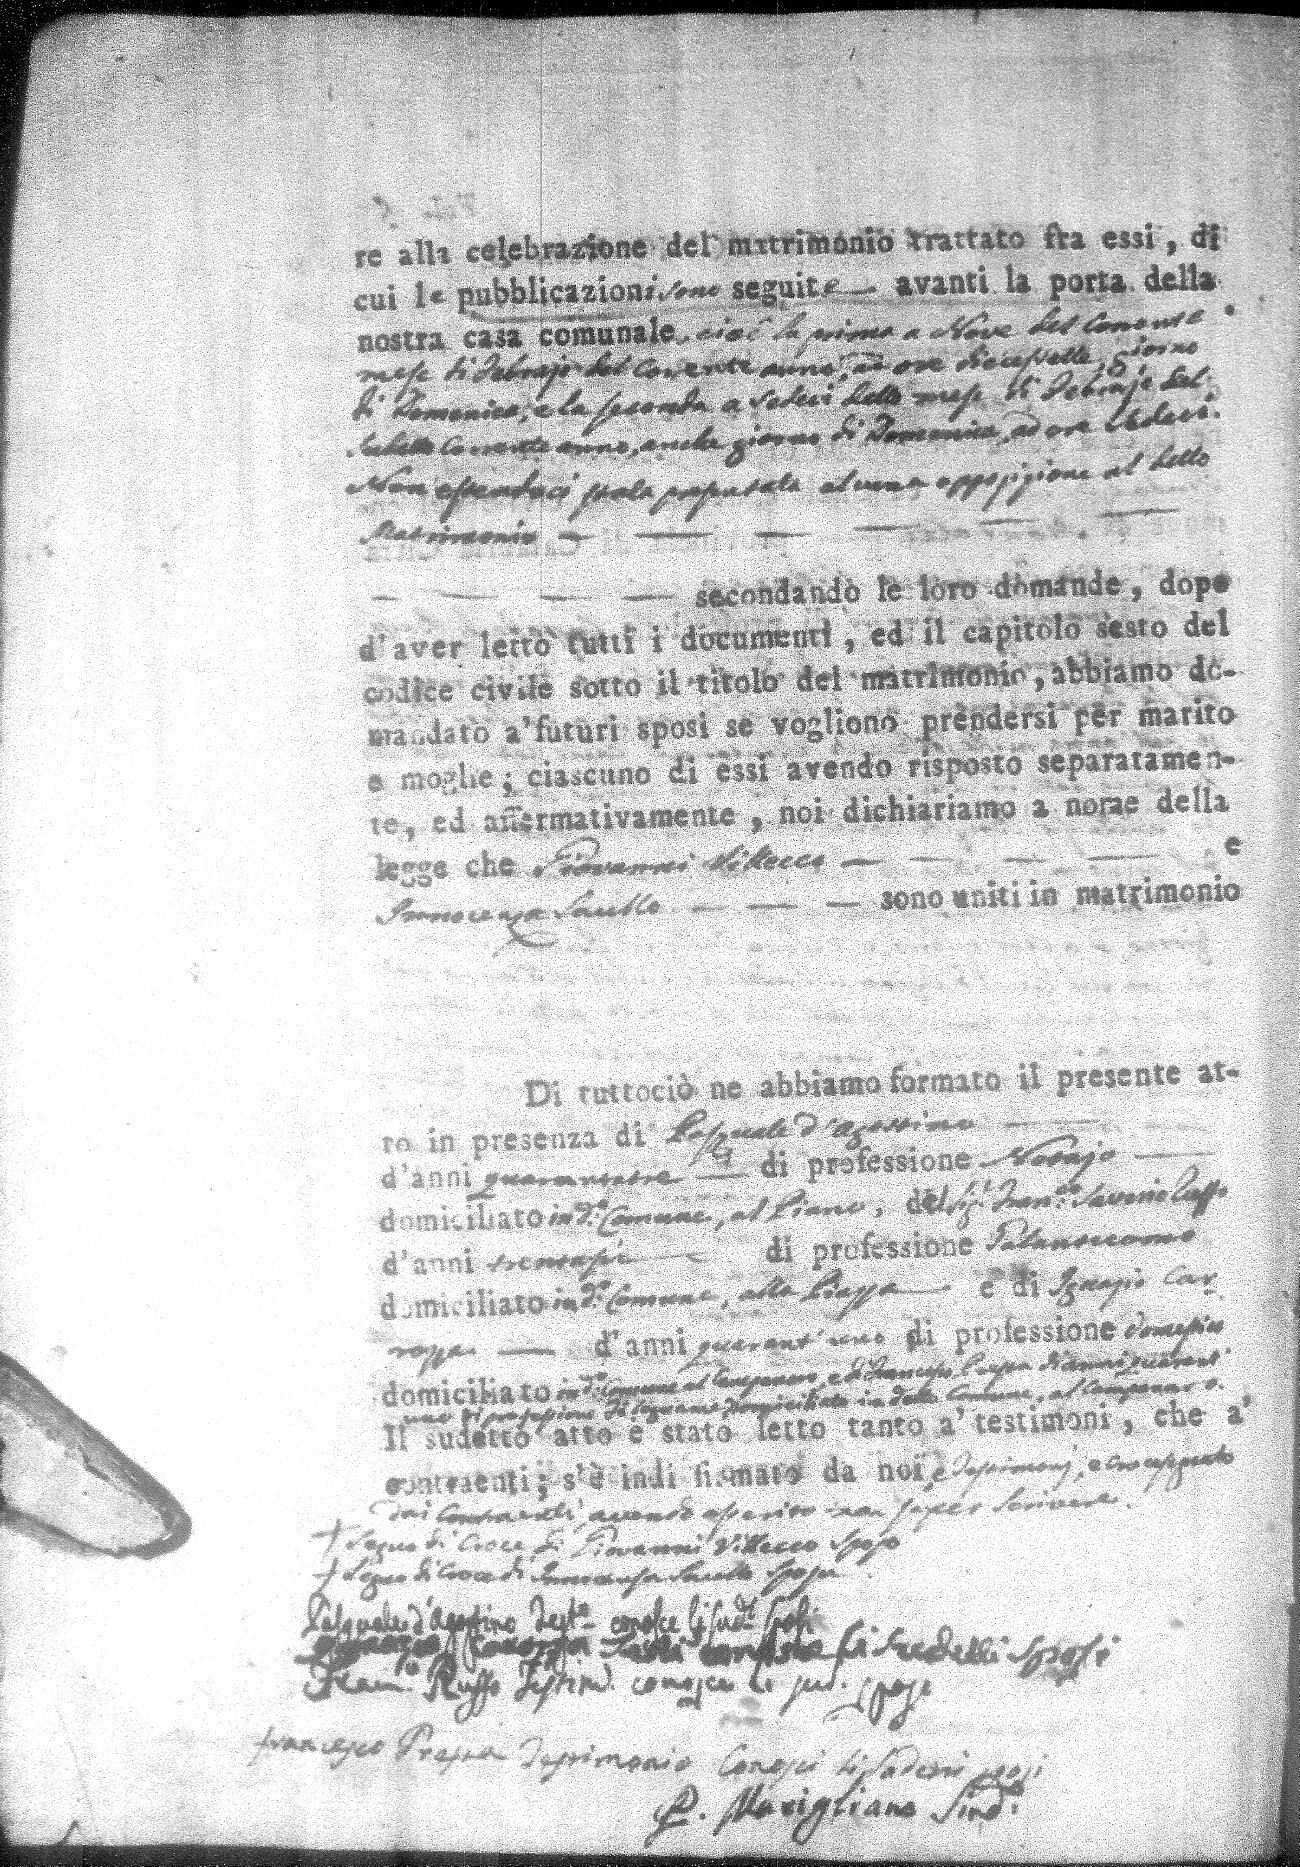 re alla celebrazione del matrimonio trattato fra essi, di
cui le pubblicazioni sono seguite — avanti la porta della
nostra casa comunale. cioè la prima a Nove del Corrente
mese di Febrajo del Corrente anno, ad ore diecessette, giorno
di Domenica, e la seconda a Sedeci detto mese di Febrajo del
sudetto Corrente anno, anche giorno di Domenica, ad ore
Non essendoci stata alcuna opposizione al detto
Matrimonio — — — — — —
— — — — secondando le loro domande, dope
d'aver letto tutti i documenti, ed il capitolo sesto del
codice civile sotto il titolo del matrimonio, abbiamo do-
mandato a' futuri sposi se vogliono prendersi per marito
e moglie; ciascuno di essi avendo risposto separatamen-
te, ed affermativamente, noi dichiariamo a nome della
legge che Giovanni Villecco — — — — e
Innocenza — — — sono uniti in matrimonio
Di tuttociò ne abbiamo formato il presente at-
to in presenza di Pasquale d'Agostino — — —
d'anni quarantatre — di professione Notajo —
domiciliato in d.o Comune, al Piano, del Sig.r Fran.co Saverio Ruffo
d'anni trentasei — di professione Galantuomo
domiciliato in d.o Comune, alla Piazza — e di Ignazio Car
— d'anni quarant'uno di professione
domiciliato in d.o Comune al Campanaro, e di Francesco d'anni quarant'
uno di professione domiciliato in detto Comune, al Campanaro.
Il sudetto atto è stato letto tanto a' testimoni, che a'
contraenti; s'è indi firmato da noi, e Testimonj, e crocesegnato
dai Contraenti, avendo asserito non saper scrivere.
+ Segno di Croce di Giovanni Villecco Sposo
+ Segno di Croce di Innocenza Sposa
Pasquale d'Agostino Test.o conosce li sud.ti sposi
Ignazio Testi conosce li sudetti Sposi
Fran.co Ruffo Testim.o conosce li sud. sposi
Francesco Testimonio Conosco li sudetti sposi
P. Marigliano Sind.o